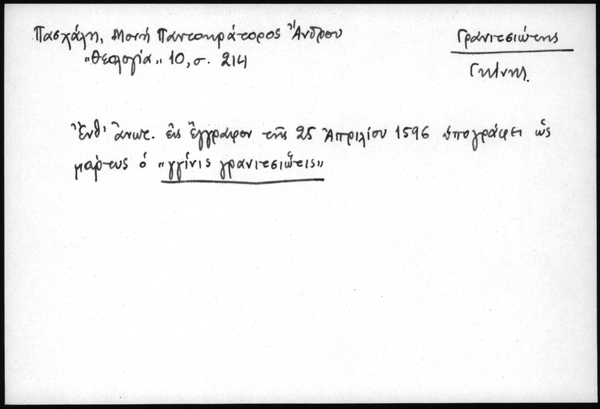 Πασχάλη, Μονή Παντοκράτορος Ἄνδρου
"Θεολογία" 10, σ. 214
Γρανιεσιώτης
Γκίνης
Ἐνθ' ἀνωτ. εἰς ἔγγραφον τῆς 25 Ἀπριλίου 1596 ὑπογράφει ὡς
μάρτυς ὁ "γγίνις γρανιεσιῶτεις"